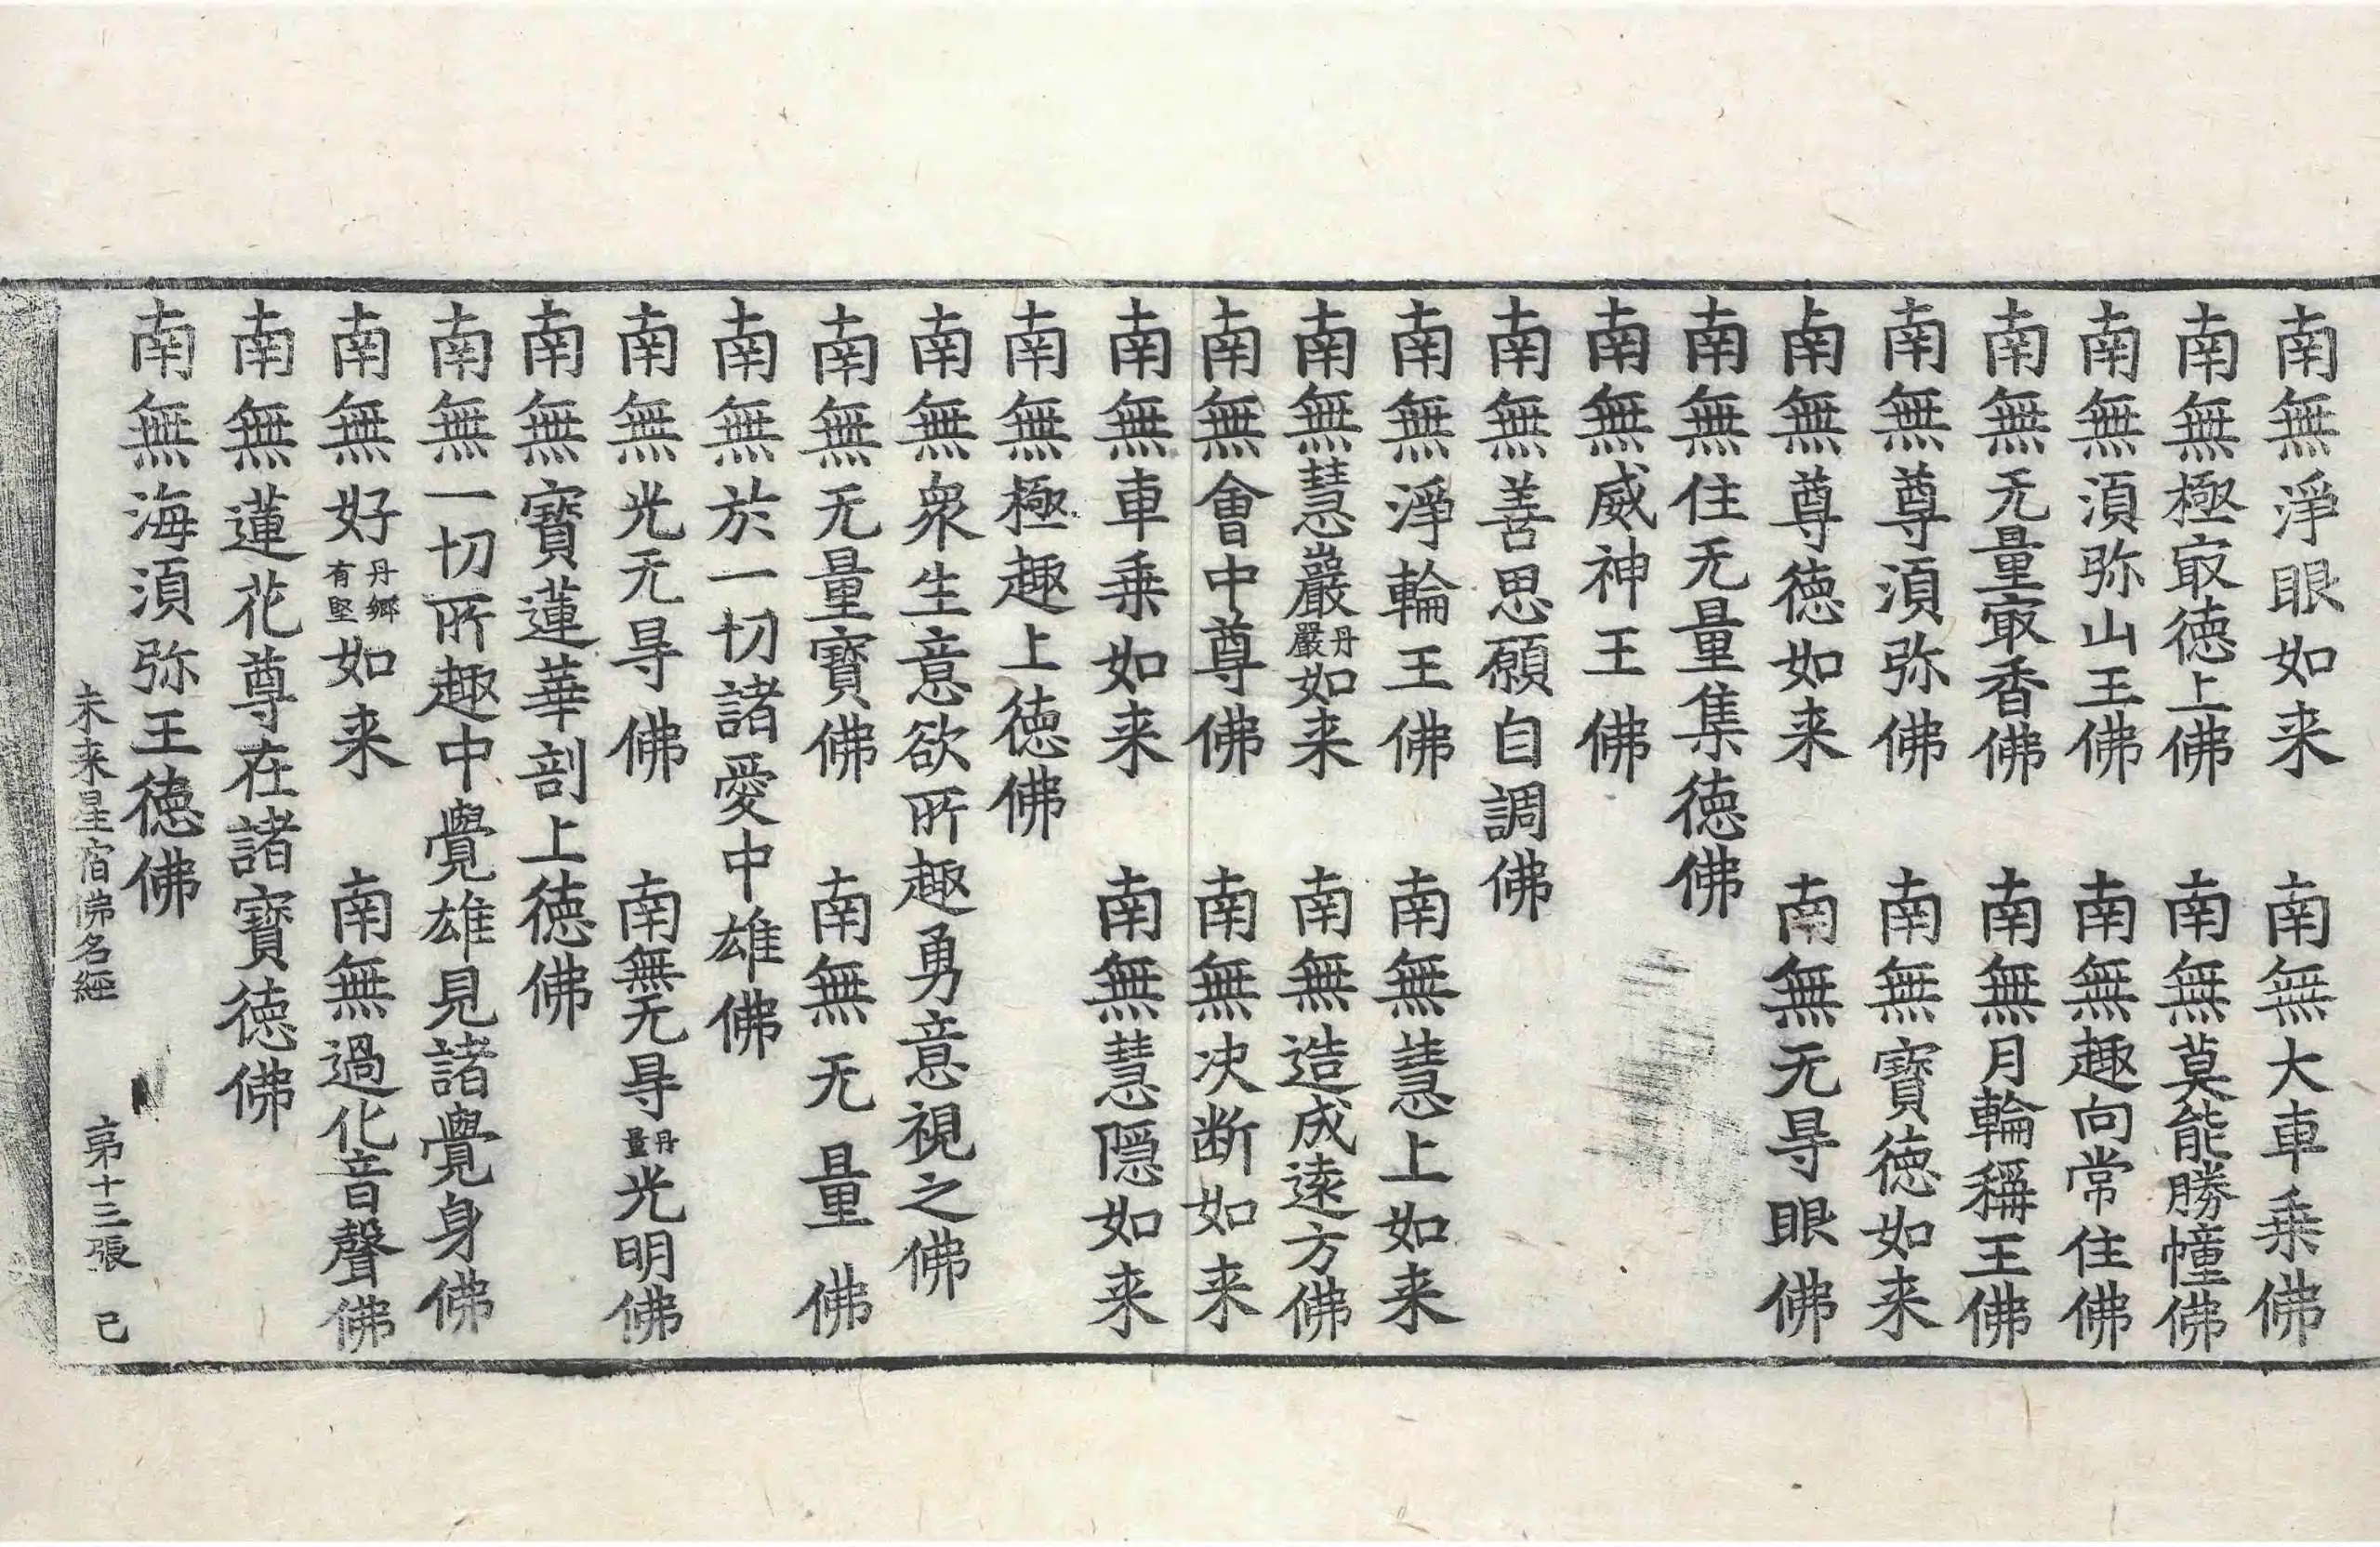 南無淨眼如来　南無大車乗佛
南無極㝡徳上佛　南無莫能勝幢佛
南無湏弥山王佛　南無趣向常住佛
南無无量㝡香佛　南無月輪稱王佛
南無尊湏弥佛　南無寳徳如来
南無尊徳如来　南無无㝵眼佛
南無住无量集徳佛
南無威神王佛
南無善思願自調佛
南無淨輪王佛　南無慧上如来
南無慧巖丹嚴如来　南無造成遠方佛
南無會中尊佛　南無决断如来
南無車乗如来　南無慧隠如来
南無極趣上徳佛
南無衆生意欲所趣勇意視之佛
南無无量寳佛　南無无量佛
南無於一切諸愛中雄佛
南無光无㝵佛　南無无㝵丹量光明佛
南無寳蓮華剖上徳佛
南無一切所趣中覺雄見諸覺身佛
南無好丹鄉有堅如来　南無過化音聲佛
南無蓮花尊在諸寳徳佛
南無海湏弥王徳佛
未来星宿佛名經　第十三張　已